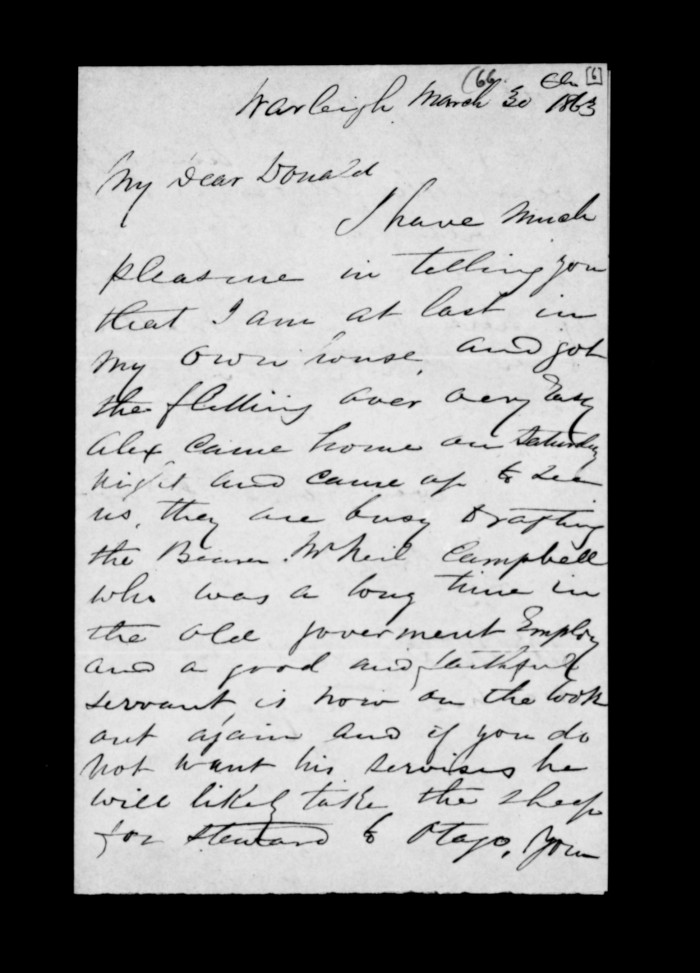 (66.
[6]
Warleigh March 30 1863
My Dear Donald
I have much
pleasure in telling you
that I am at last in
my own house, and got
the flitting over very Easy
Alex came home on Saturday
night and came up to see
us, they are busy Drafting
the Bearer Mr Neil Campbell
who was a long time in
the old goverment Employ
and a good and faithfull
servant is now on the look
out again and if you do
not want his servises he
will likely take the sheep
for to Otago, you